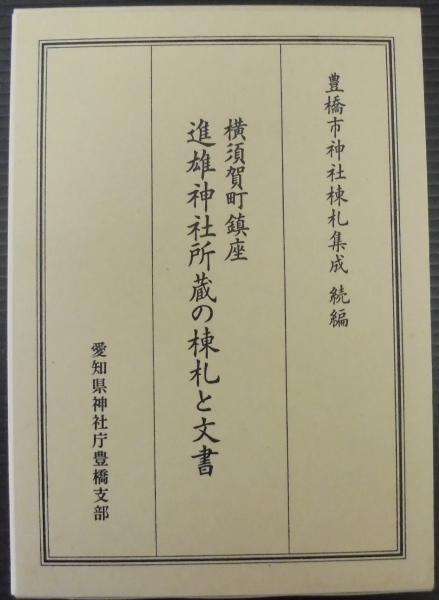 豊橋市神社棟札集成 続編
横須賀町鎮座
進雄神社所蔵の棟札と文書
愛知県神社庁豊橋支部